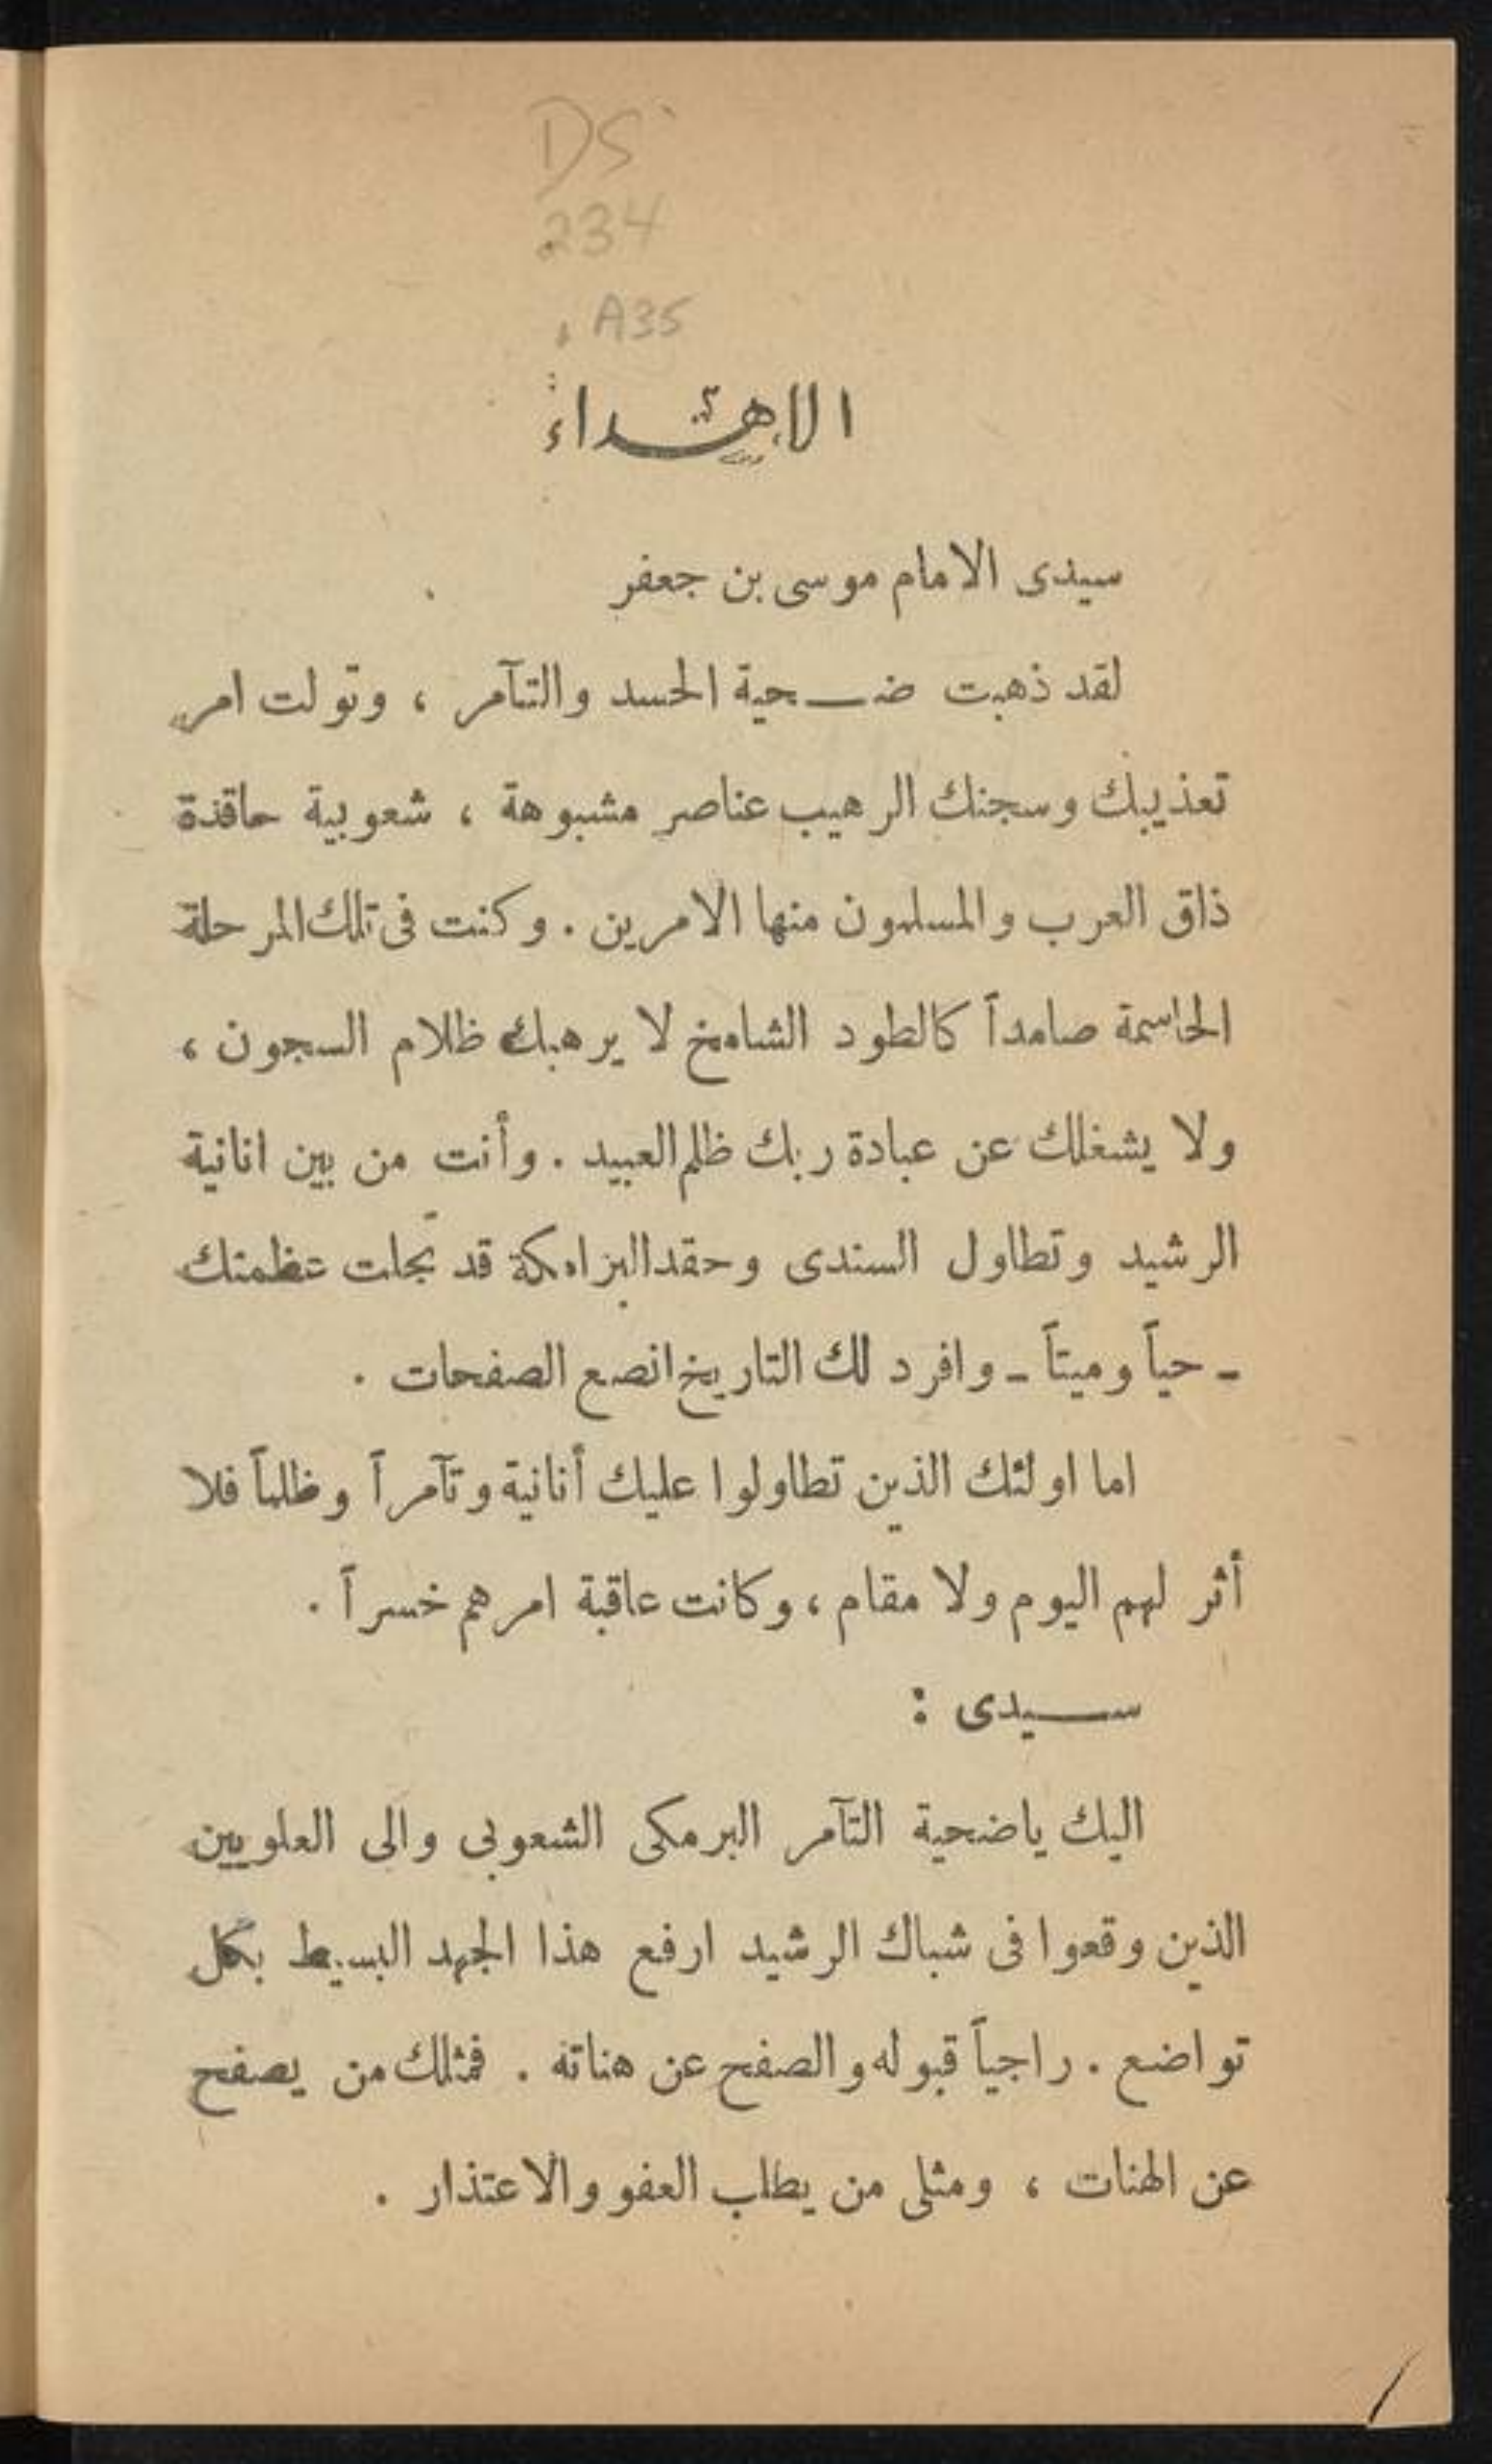 DS
234
.A35
الاهداء
سيدى الامام موسى بن جعفر
لقد ذهبت ضـحية الحسد والتآمر ، وتولت امر
تعذيبك وسجنك الرهيب عناصر مشبوهة ، شعوبية حاقدة
ذاق العرب والمسلمون منها الامرين . وكنت فى تلك المرحلة
الحاسمة صامداً كالطود الشامخ لا يرهبك ظلام السجون ،
ولا يشغلك عن عبادة ربك ظلم العبيد . وأنت من بين انانية
الرشيد وتطاول السندى وحقد البرامكة قد تجلت عظمتك
- حياً وميتاً - وافرد لك التاريخ انصع الصفحات .
اما اولئك الذين تطاولوا عليك أنانية وتآمراً وظلماً فلا
أثر لهم اليوم ولا مقام ، وكانت عاقبة امرهم خسراً .
ســيدى :
اليك ياضحية التآمر البرمكى الشعوبى والى العلويين
الذين وقعوا فى شباك الرشيد ارفع هذا الجهد البسيط بكل
تواضع . راجياً قبوله والصفح عن هناته . فمثلك من يصفح
عن الهنات ، ومثلى من يطلب العفو والاعتذار .